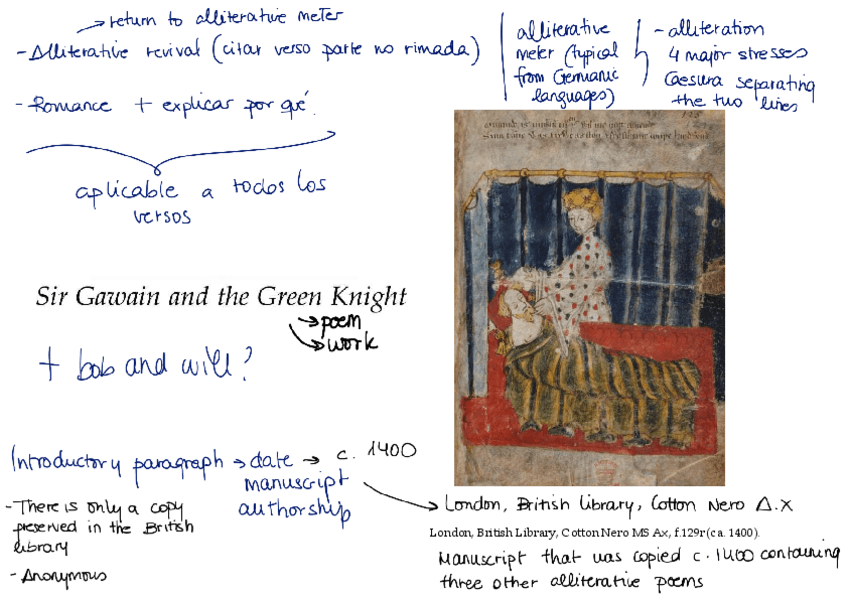 → return to alliterative meter
- Alliterative revival (citar verso parte no rimada)
- Romance + explicar por qué.
aplicable a todos los
versos
alliterative
meter (typical
from Germanic
languages)
- alliteration
4 major stresses
Caesura separating
the two lines
Sir Gawain and the Green Knight
→ poem
→ work
+ bob and will?
Introductory paragraph → date → c. 1400
manuscript
authorship
- There is only a copy
preserved in the British
library
- Anonymous
→ London, British Library, Cotton Nero A.x
London, British Library, Cotton Nero MS Ax, f.129r (ca. 1400).
Manuscript that was copied c. 1400 containing
three other alliterative poems